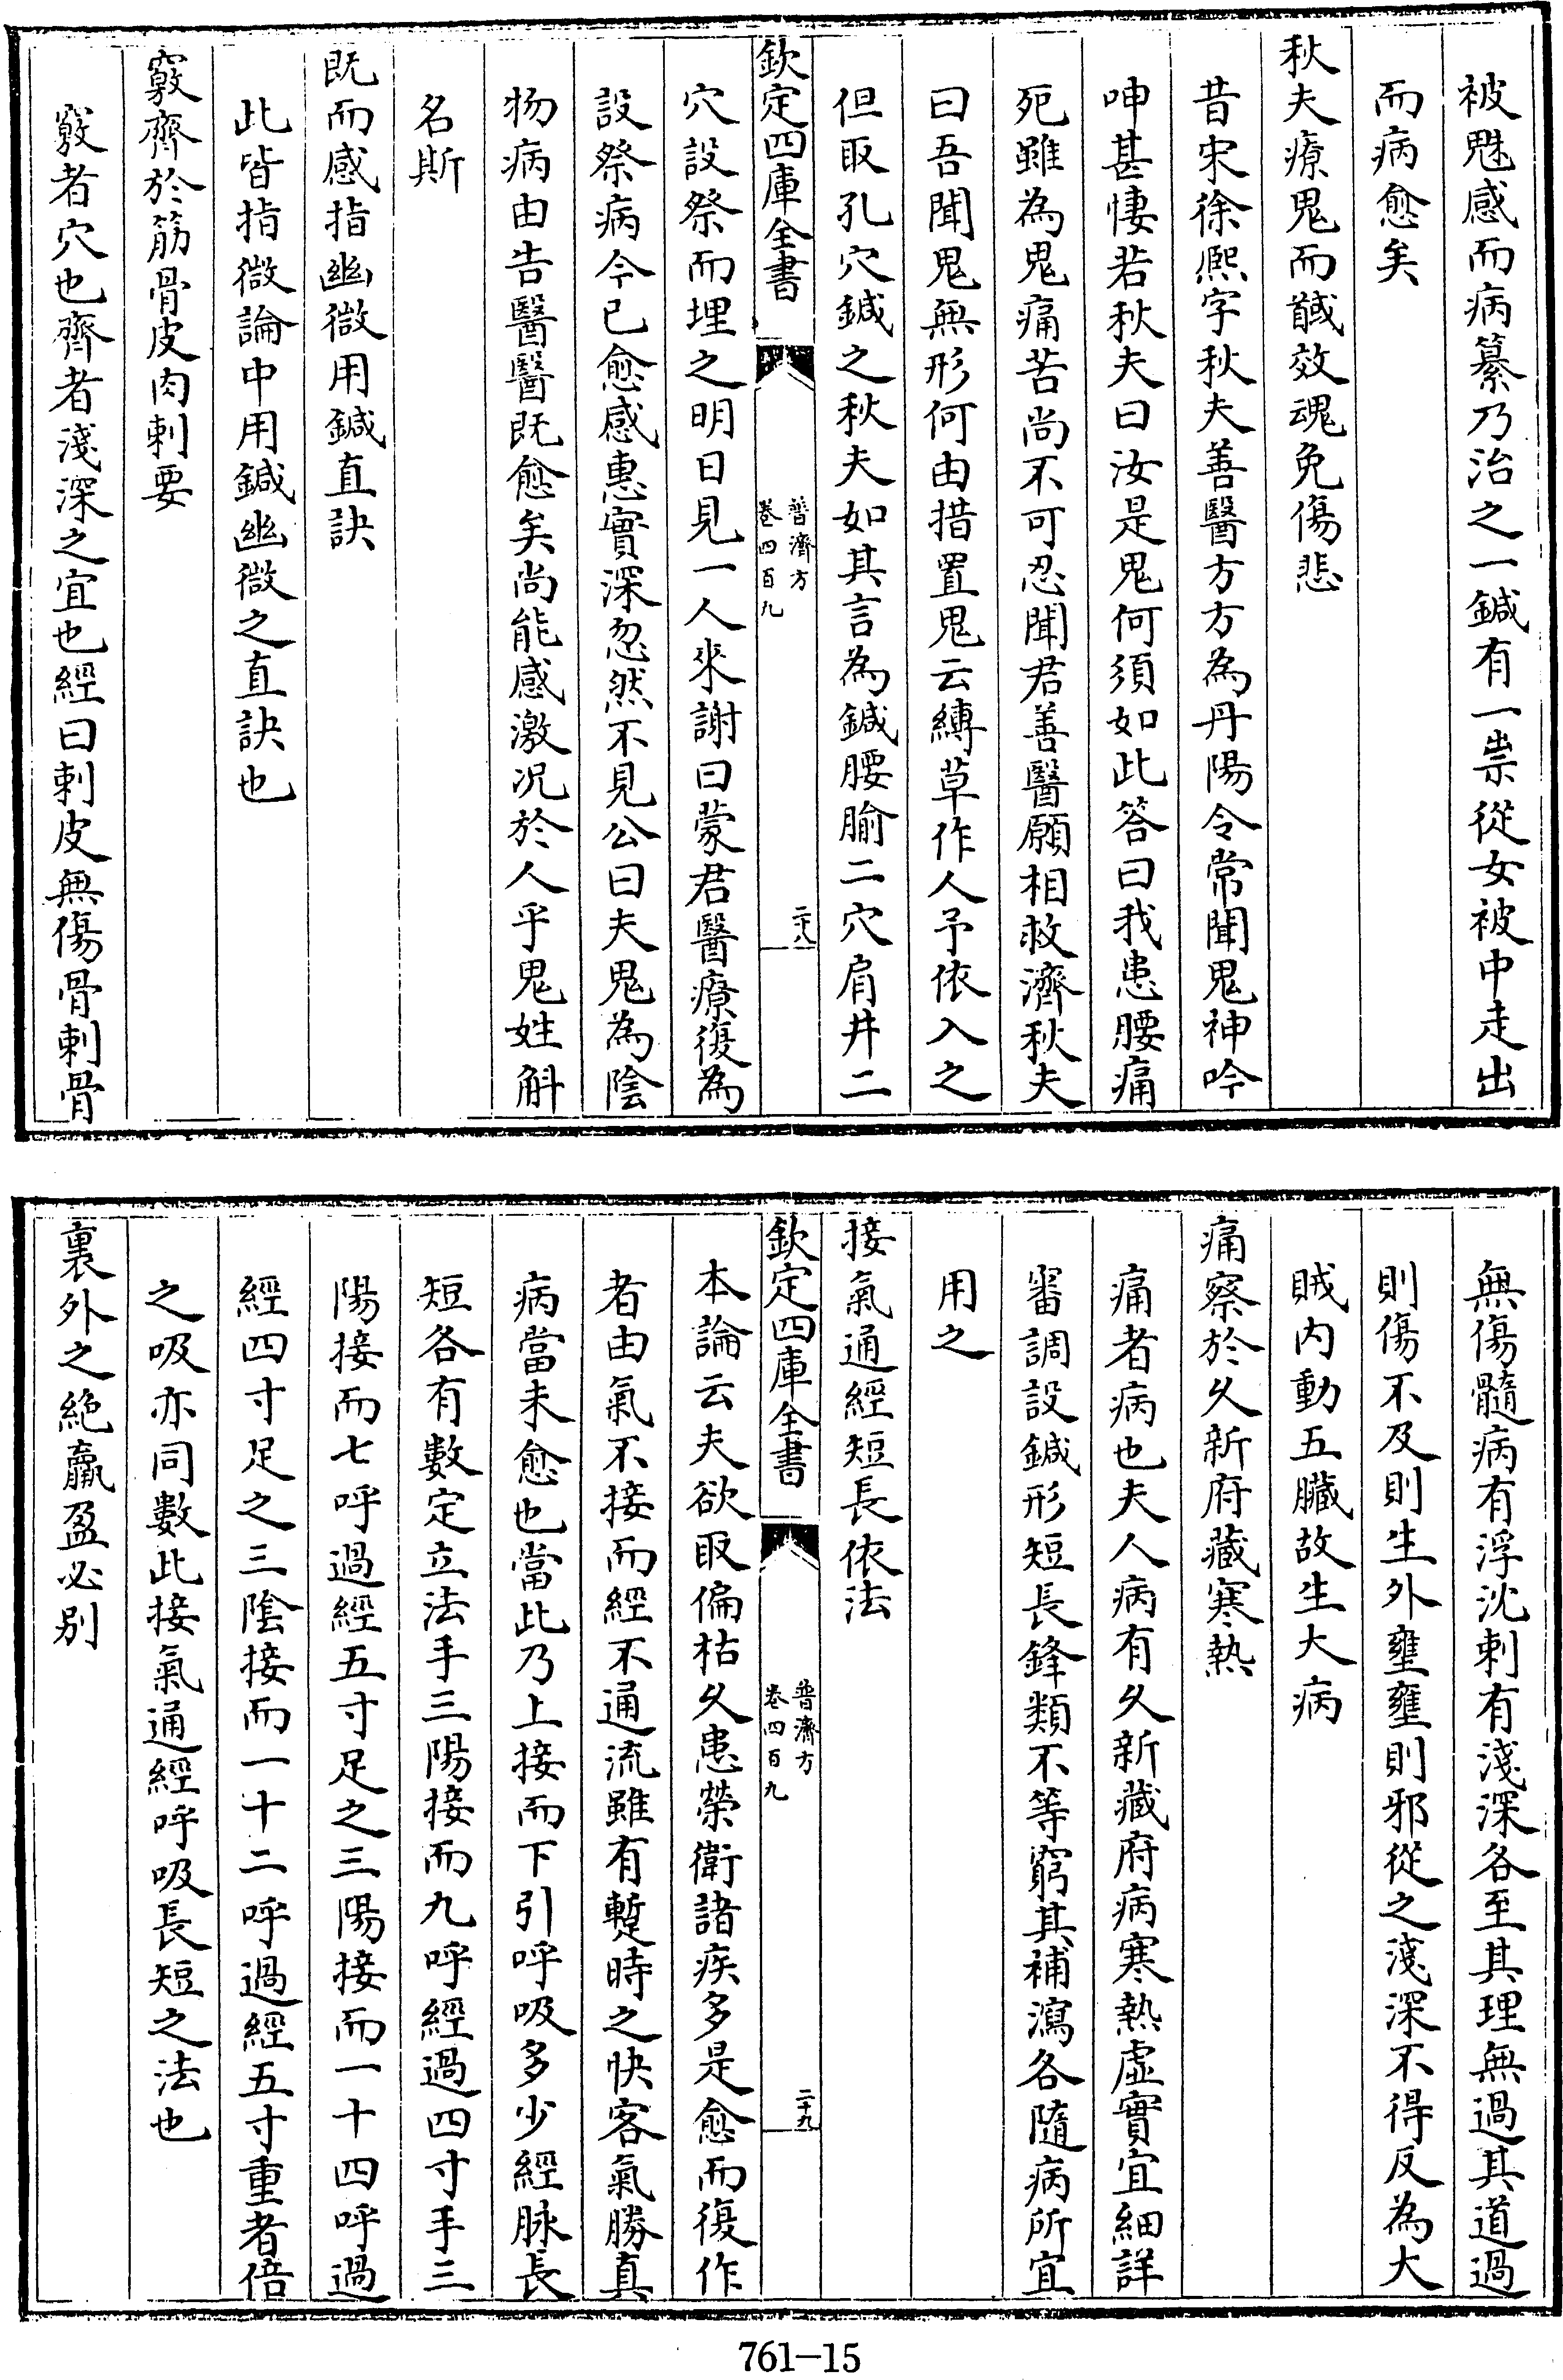 被魅惑而病纂乃治之一鍼有一祟從女被中走出
而病愈矣
秋夫療鬼而馘效魂免傷悲
昔宋徐熈字秋夫善醫方方為丹陽令常聞鬼神吟
呻甚悽若秋夫曰汝是鬼何須如此答曰我患腰痛
死雖為鬼痛苦尚不可忍聞君善醫願相救濟秋夫
曰吾聞鬼無形何由措置鬼云縳草作人予依入之
但取孔穴鍼之秋夫如其言為鍼腰腧二穴肩井二
欽定四庫全書
普濟方
卷四百九
二十八
穴設祭而埋之明日見一人來謝曰蒙君醫療復為
設祭病今已愈感惠實深忽然不見公曰夫鬼為陰
物病由告醫醫既愈矣尚能感激况於人乎鬼姓斛
名斯
既而感指幽微用鍼直訣
此皆指微論中用鍼幽微之直訣也
竅齊於筋骨皮肉刺要
竅者穴也齊者淺深之宜也經曰刺皮無傷骨刺骨
無傷髓病有浮沈刺有淺深各至其理無過其道過
則傷不及則生外壅壅則邪從之淺深不得反為大
賊内動五臟故生大病
痛察於久新府藏寒熱
痛者病也夫人病有久新藏府病寒熱虛實宜細詳
審調設鍼形短長鋒類不等窮其補瀉各隨病所宜
用之
接氣通經短長依法
欽定四庫全書
普濟方
卷四百九
二十九
本論云夫欲取偏枯久患榮衛諸疾多是愈而復作
者由氣不接而經不通流雖有蹔時之快客氣勝真
病當未愈也當此乃上接而下引呼吸多少經脉長
短各有數定立法手三陽接而九呼經過四寸手三
陽接而七呼過經五寸足之三陽接而一十四呼過
經四寸足之三陰接而一十二呼過經五寸重者倍
之吸亦同數此接氣通經呼吸長短之法也
裏外之絶羸盈必别
761-15